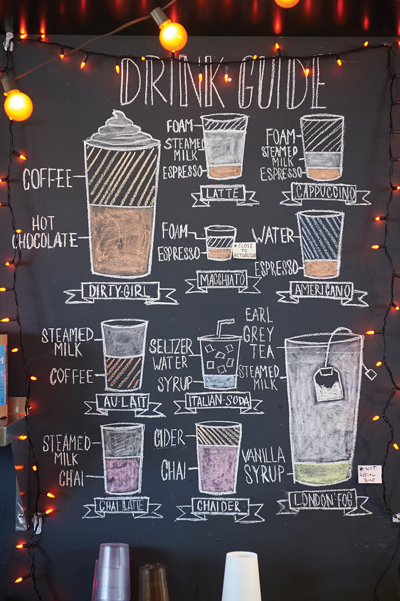 DRINK GUIDE
COFFEE
HOT
CHOCOLATE
DIRTY GIRL
FOAM
STEAMED
MILK
ESPRESSO
LATTE
FOAM
STEAMED
MILK
ESPRESSO
CAPPUCCINO
FOAM
ESPRESSO
* CLOSE
TO
MACCHIATO
WATER
ESPRESSO
AMERICANO
STEAMED
MILK
COFFEE
AU LAIT
SELTZER
WATER
SYRUP
ITALIAN SODA
EARL
GREY
TEA
STEAMED
MILK
VANILLA
SYRUP
* NOT
LONDON FOG
STEAMED
MILK
CHAI
CHAI LATTE
CIDER
CHAI
CHAIDER